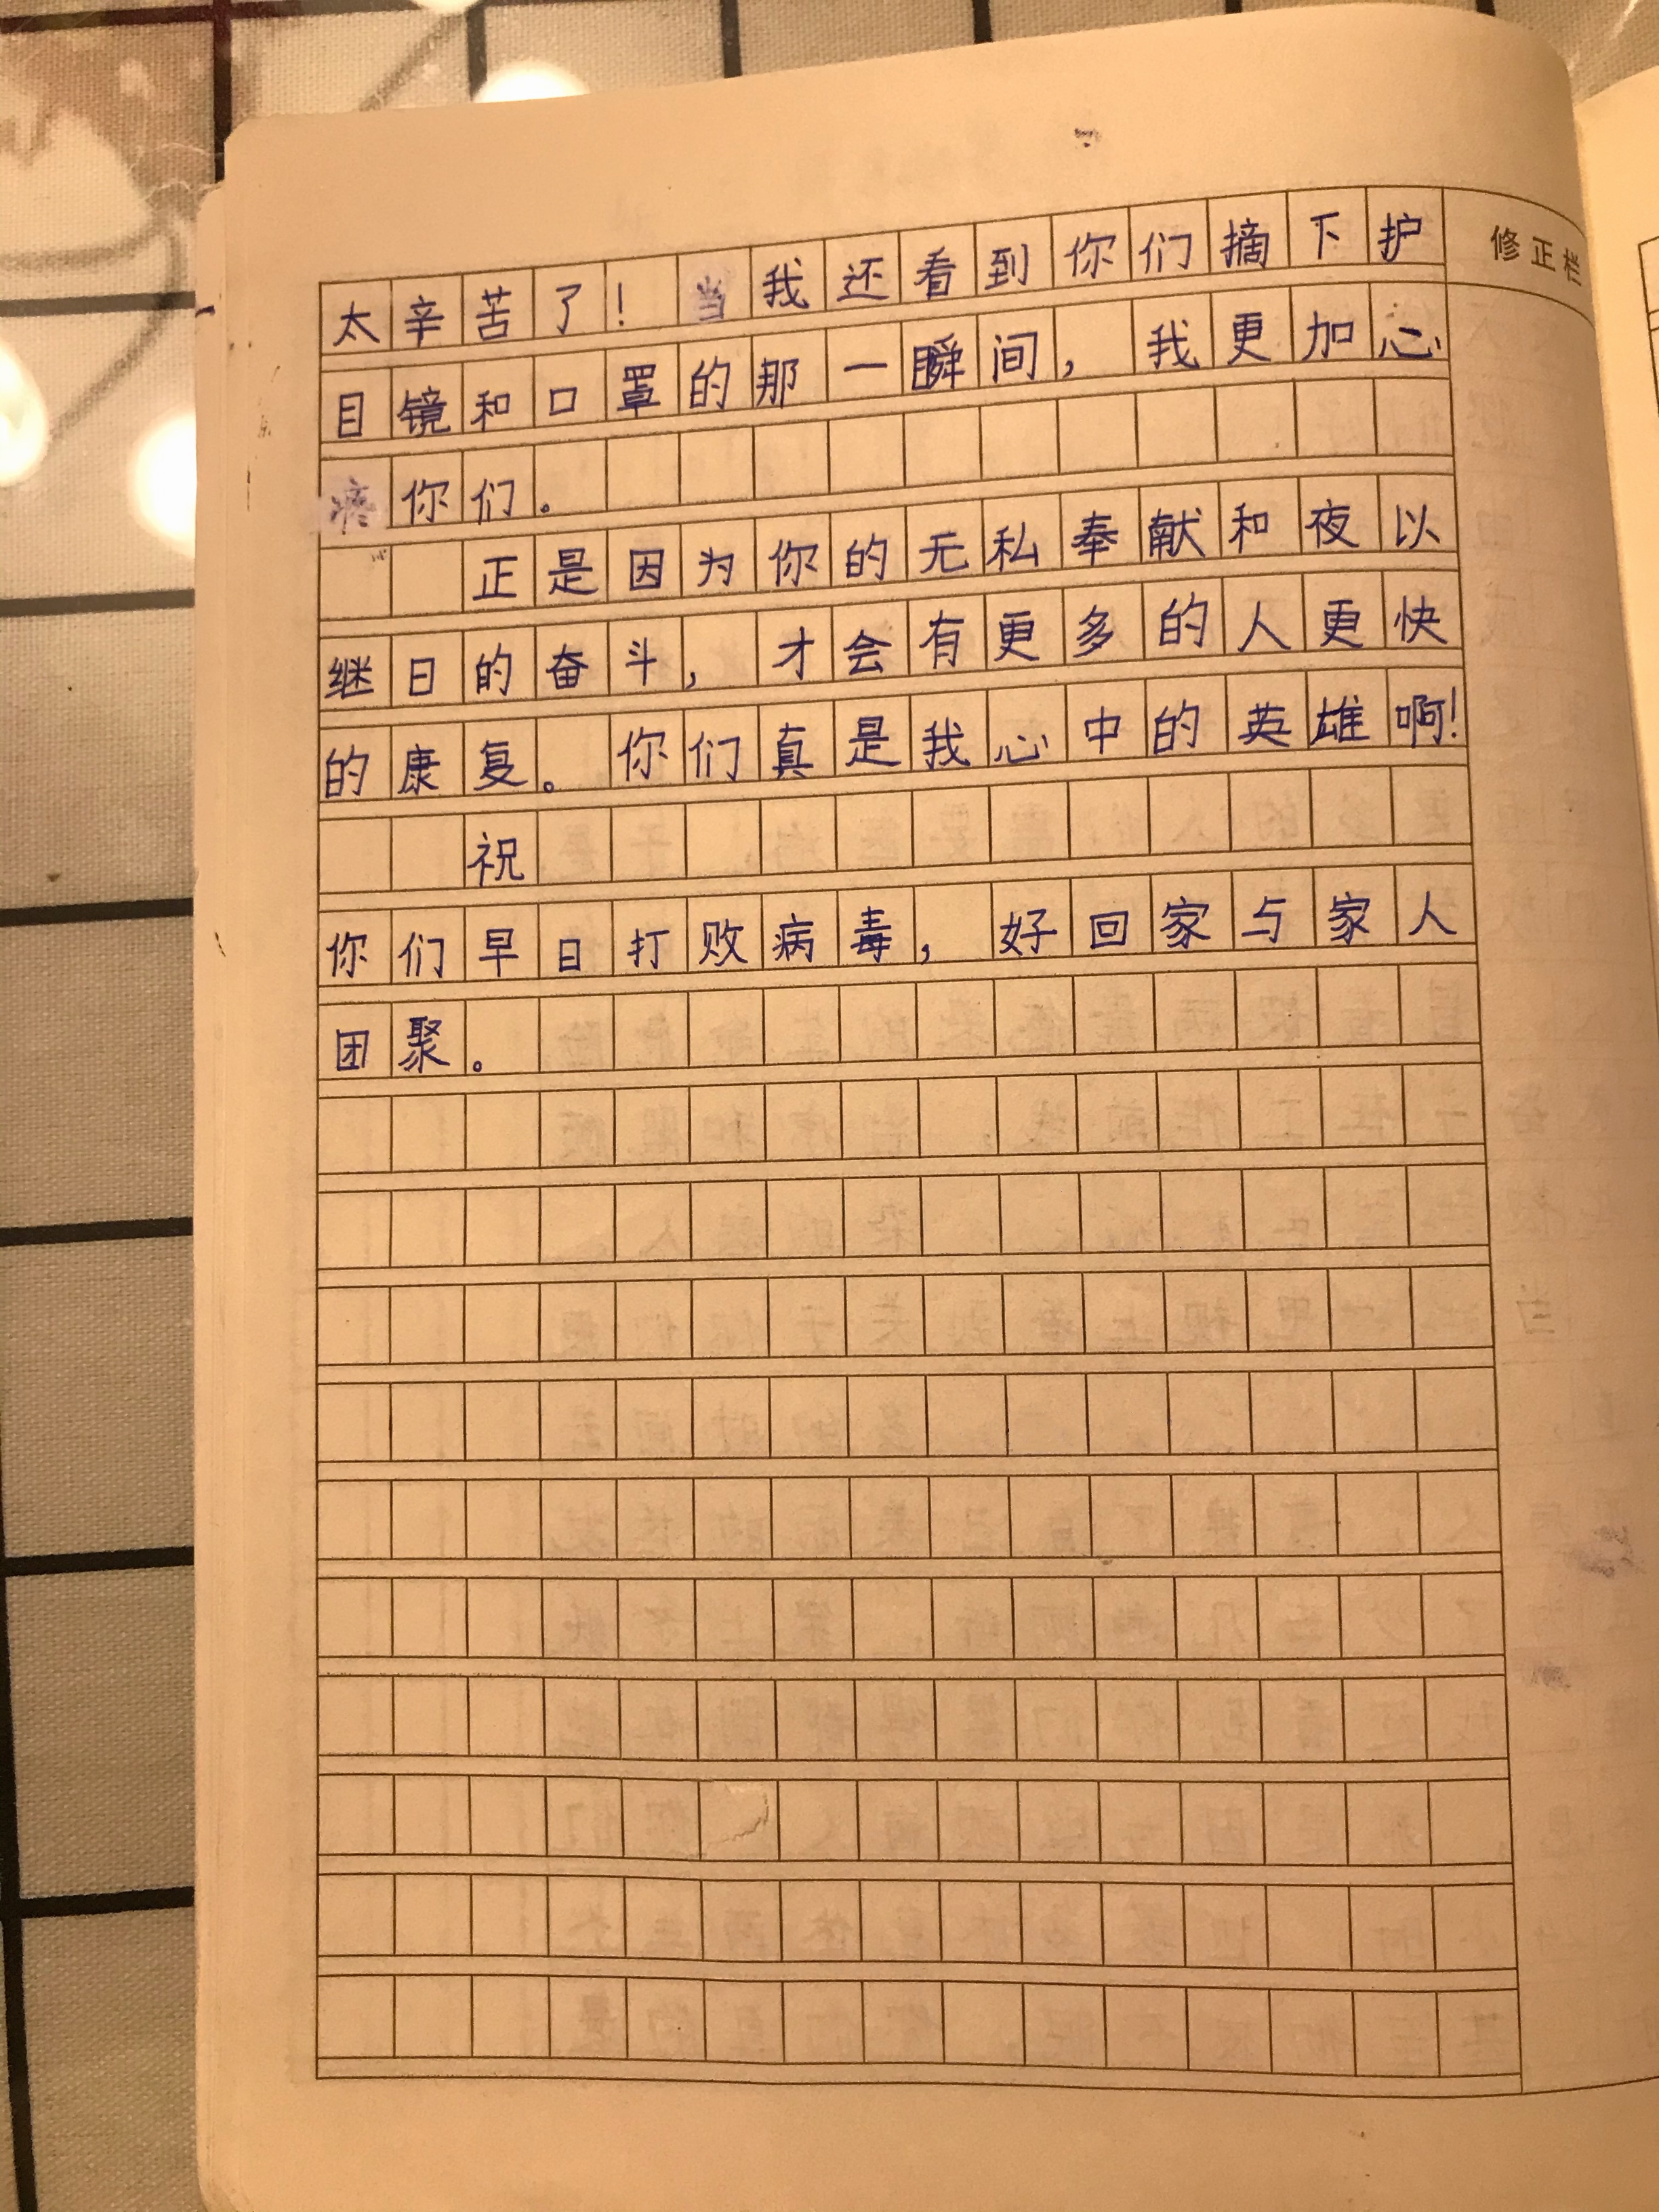 修正栏
太辛苦了！当我还看到你们摘下护
目镜和口罩的那一瞬间，我更加心
疼你们。
正是因为你的无私奉献和夜以
继日的奋斗，才会有更多的人更快
的康复。你们真是我心中的英雄啊！
祝
你们早日打败病毒，好回家与家人
团聚。